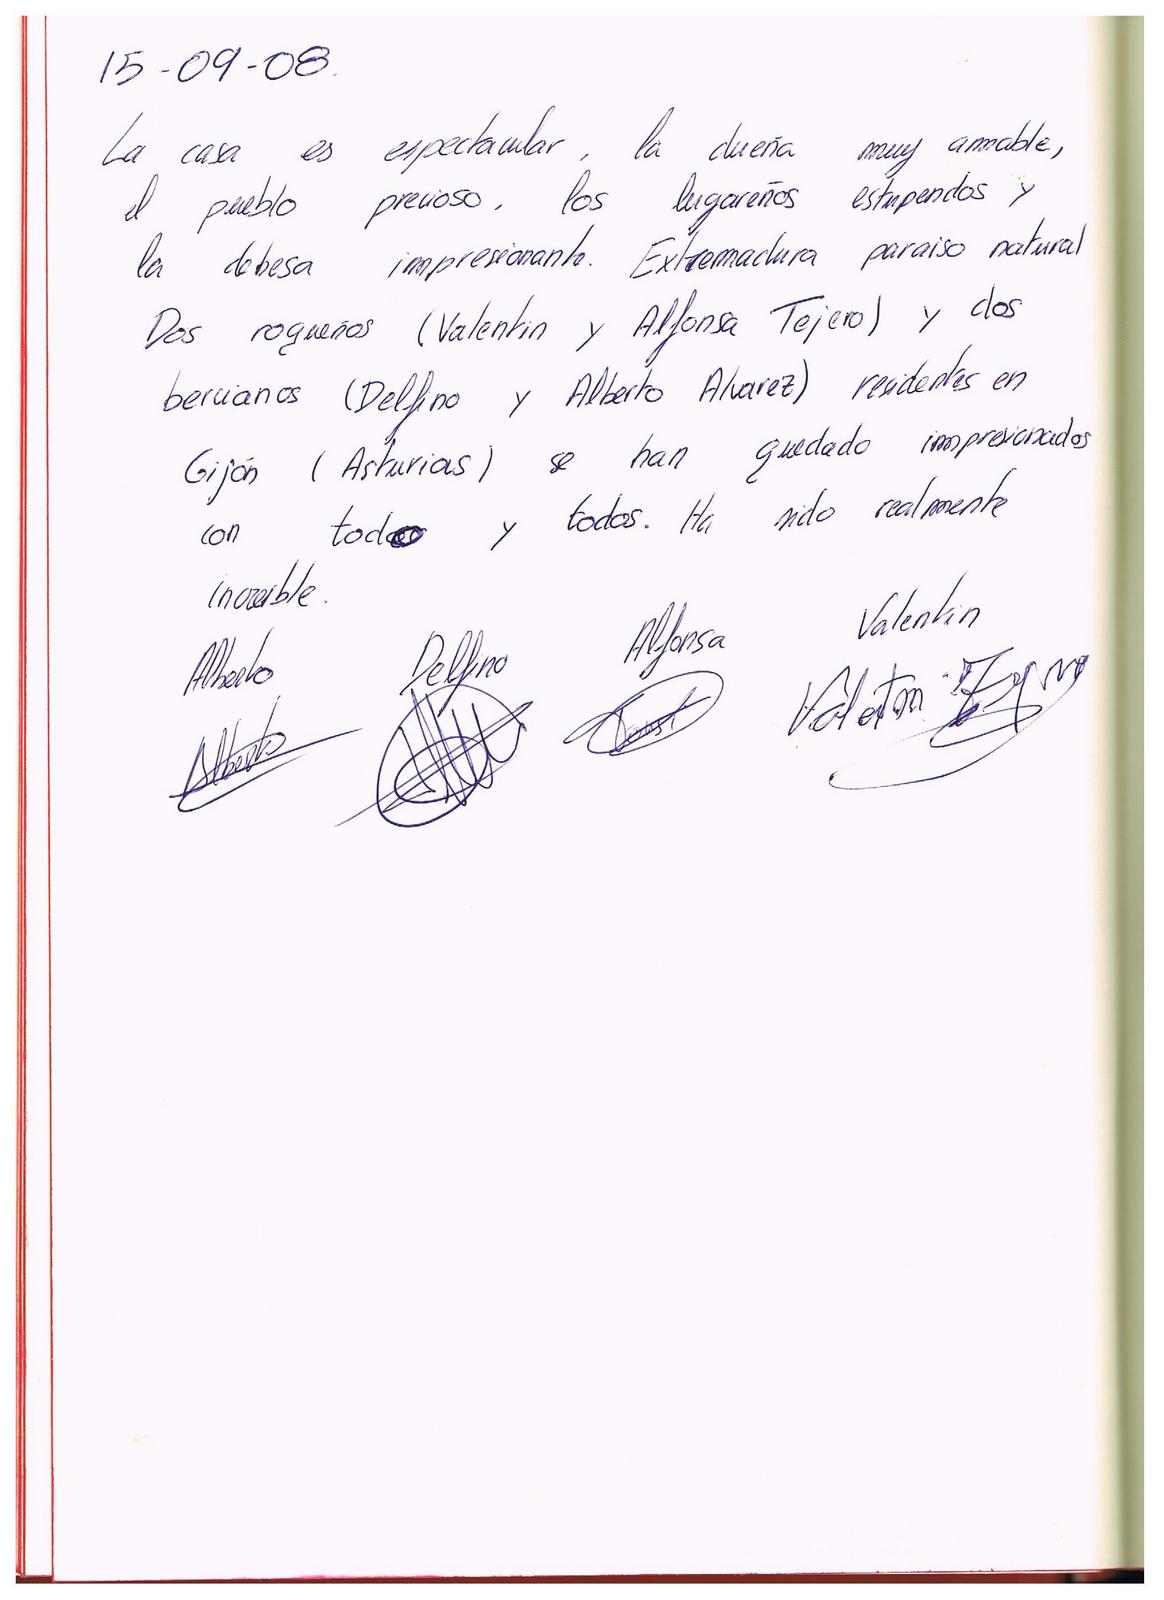 15-09-08.
La casa es espectacular, la dueña muy amable,
el pueblo precioso, los lugareños estupendos y
la debesa impresionante. Extremadura paraiso natural
Dos roqueños (Valentin y Alfonsa Tejero) y dos
bercianos (Delfino y Alberto Alvarez) residentes en
Gijón (Asturias) se han quedado impresionados
con todo y todos. Ha sido realmente
increible.
Alberto Delfino Alfonsa Valentin
Alberto Valentin